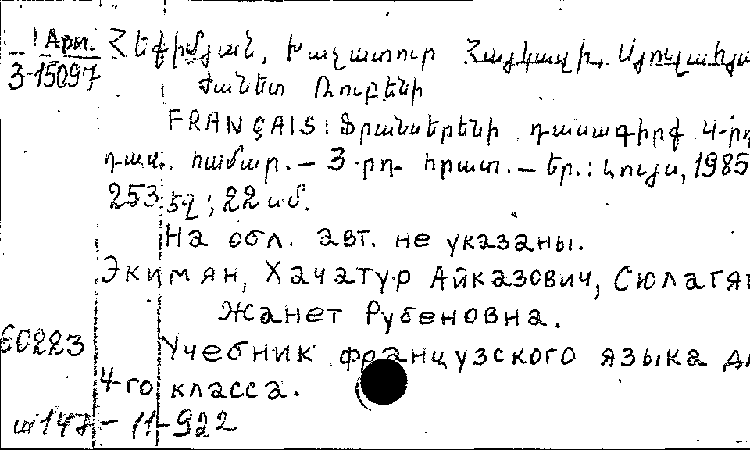 Арм.
3-15097
Հեքիմյան, Խաչատուր Հայկազի, Սյուլահյա
Ժանետ Ռուբենի
FRANÇAIS: Ֆրանսերենի դասագիրք 4-րդ
դաս. համար. – 3-րդ հրատ. – Եր.: Լույս, 1985
253 էջ; 22 սմ.
На обл. авт. не указаны.
Экимян, Хачатур Айказович, Сюлагян
Жанет Рубеновна.
60223
Учебник французского языка дл
4-го класса.
147 – 11-922